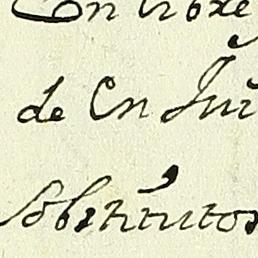 En libre
de En Jui
Sobstitutos